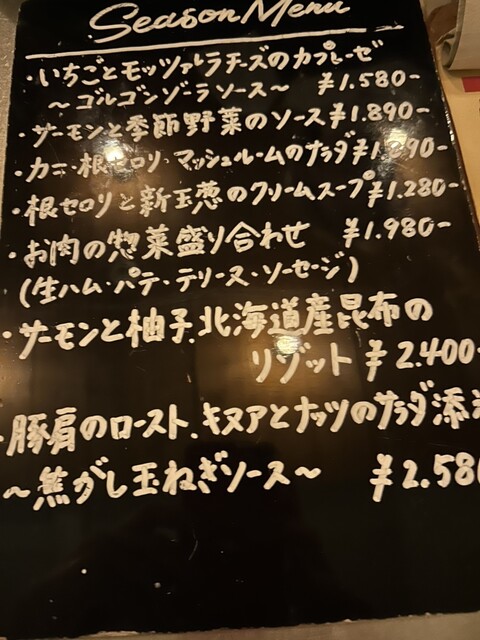 Season Menu
・いちごとモッツァレラチーズのカプレーゼ
～ゴルゴンゾーラソース～ ¥1.580-
・サーモンと季節野菜のソース ¥1.890-
・カニ・根セロリ マッシュルームのサラダ
・根セロリと新玉葱のクリームスープ ¥1.280-
・お肉の惣菜盛り合わせ ¥1.980-
(生ハム・パテ・テリーヌ・ソーセージ)
・サーモンと柚子、北海道産昆布の
リゾット ¥2.400-
・豚肩のロースト、キヌアとナッツのサラダ添
～焦がし玉ねぎソース～ ¥2.580